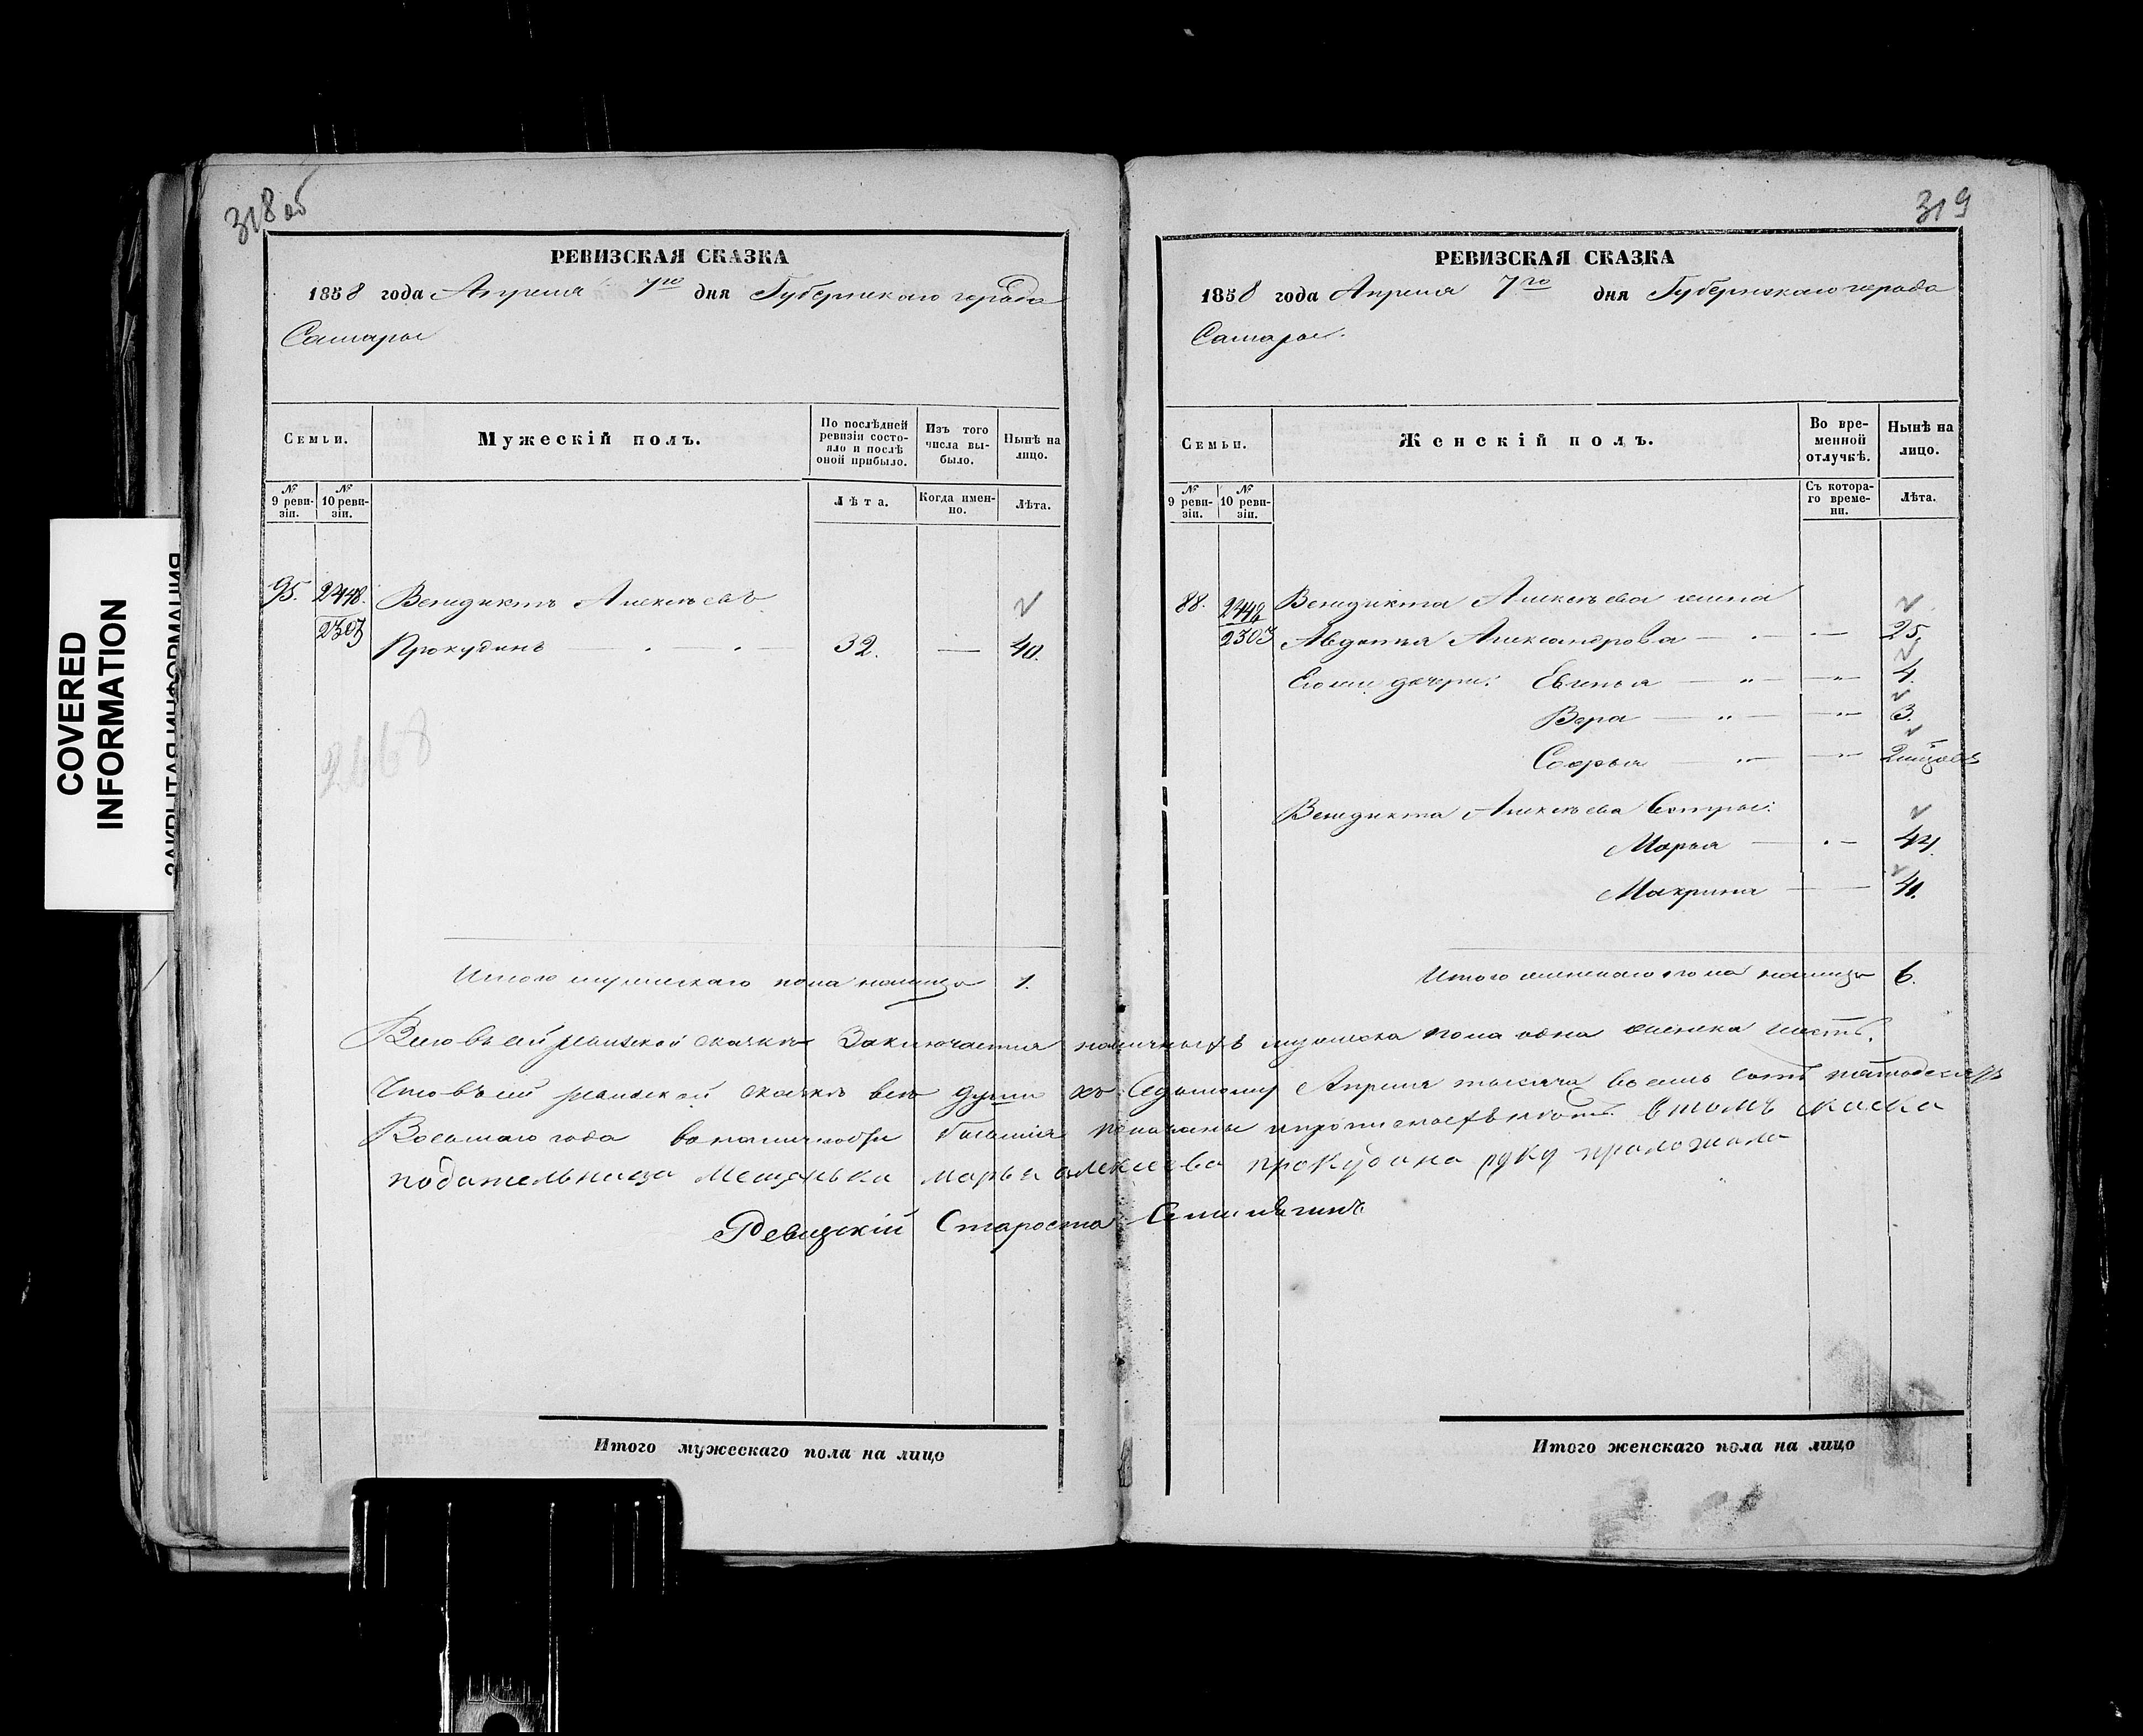 318 об
РЕВИЗСКАЯ СКАЗКА
1858 года Апреля 7го дня Губернскаго города
Самары
Семьи.
Мужескій полъ.
По послѣдней ревизіи состояло и послѣ оной прибыло.
Изъ того числа выбыло.
Нынѣ на лицо.
№ 9 ревизіи.
№ 10 ревизіи.
Лѣта.
Когда именно.
Лѣта.
95. 2448. Венедиктъ Алексѣевъ
2303 Прокудинъ 32. — 40.
2468
Итого мужескаго пола налицо 1.
319
РЕВИЗСКАЯ СКАЗКА
1858 года Апреля 7го дня Губернскаго города
Самары.
Семьи.
Женскій полъ.
Во временной отлучкѣ.
Нынѣ на лицо.
№ 9 ревизіи.
№ 10 ревизіи.
Съ котораго времени.
Лѣта.
88. 2448 Венедикта Алексѣева жена
2303 Авдотья Александрова — 25,
Его же дочери: Евгенья — " — " — 4.
Вера — " — " — 3.
Софья — " — " — 2
Венедикта Алексѣева Сестры:
Марья — 44.
Макрина — 41.
Итого женскаго пола налицо 6.
Всего въ сей ревизской сказкѣ Заключается наличныхъ мужеска пола одна женска шесть.
Что въ сей ревизской сказкѣ все души къ Седьмому Апреля тысяча восемь сотъ пятьдесятъ
Восьмаго года в наличности бывшія показаны и прописныхъ нѣтъ. В томъ скаска
подательница Мещанька марья алексеева прокудина руку приложила
Ревизскій Староста
Итого мужескаго пола на лицо
Итого женскаго пола на лицо
COVERED
INFORMATION
ЗАКРЫТАЯ ИНФОРМАЦИЯ